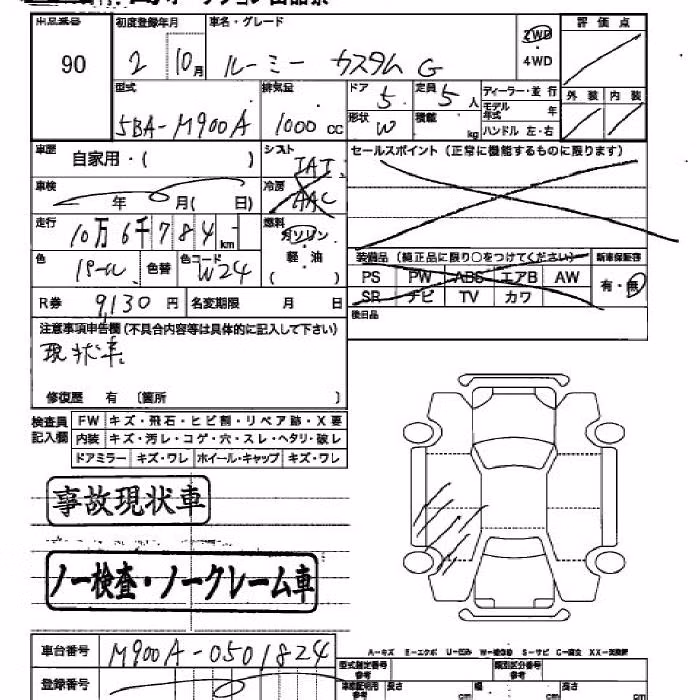 出品番号 初度登録年月 車名・グレード 評価点
90 2 10月 ルーミー カスタムG 2WD
・
4WD
型式 排気量 ドア 定員 ディーラー・並行 外装 内装
5 5人 モデル年式 年
5BA-M900A 1000cc 形状 W 積載 kg ハンドル 左・右
車歴 自家用・( ) シフト IAT セールスポイント(正常に機能するものに限ります)
車検 年 月( 日) 冷房 AAC
走行 10万6千784km 燃料 ガソリン
軽・油
装備品(純正品に限り○をつけてください) 新車保証書
色 パール 色替 色コード W24 PS PW ABS エアB AW 有・無
SR ナビ TV カワ
R券 9,130円 名変期限 月 日 後日品
注意事項申告欄(不具合内容等は具体的に記入して下さい)
現状車
修復歴 有 〔箇所 〕
検査員 FW キズ・飛石・ヒビ割・リペア跡・X要
記入欄 内装 キズ・汚レ・コゲ・穴・スレ・ヘタリ・破レ
ドアミラー キズ・ワレ ホイール・キャップ キズ・ワレ
事故現状車
ノー検査・ノークレーム車
A-キズ E-エクボ U-凹み W-補修跡 S-サビ C-腐食 XX-交換済
車台番号 M900A-0501824 型式指定番号 参考 類別区分番号 参考
登録番号 長さ cm 幅 cm 高さ cm